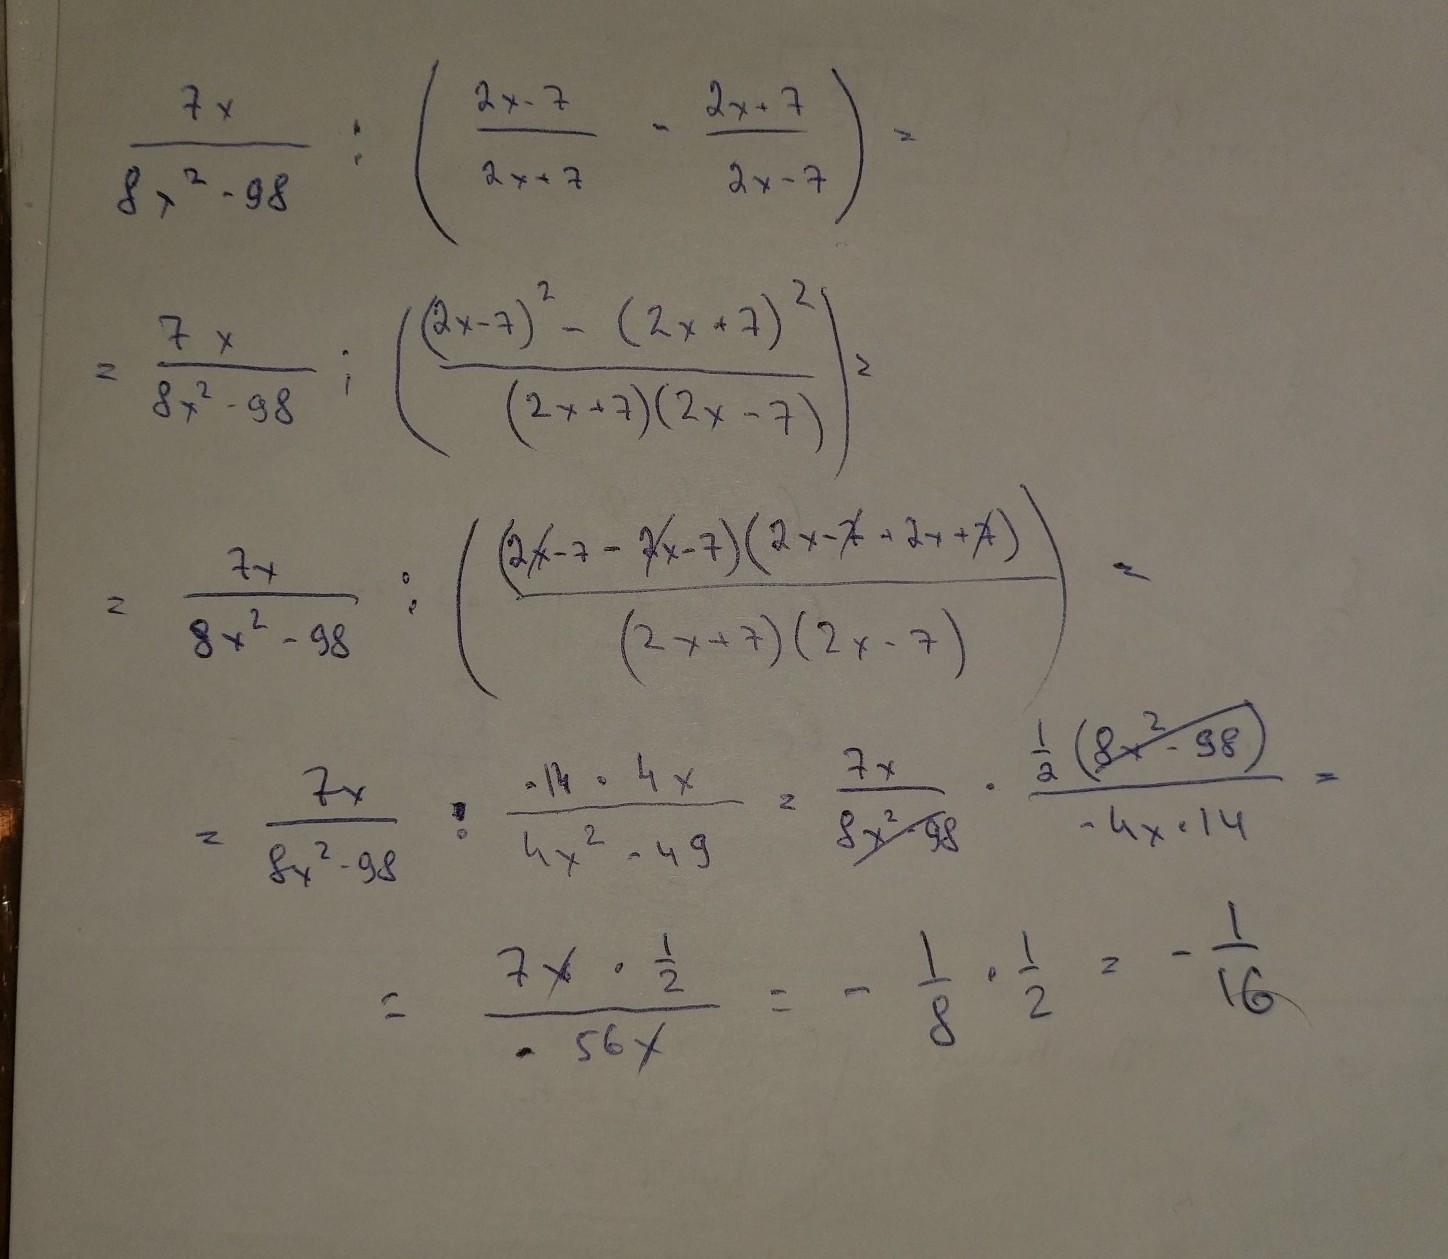 7x / (8x² - 98) : ( (2x-7)/(2x+7) - (2x+7)/(2x-7) ) =
= 7x / (8x² - 98) : ( ((2x-7)² - (2x+7)²) / ((2x+7)(2x-7)) ) =
= 7x / (8x² - 98) : ( ((2x-7-2x-7)(2x-7+2x+7)) / ((2x+7)(2x-7)) ) =
= 7x / (8x² - 98) : (-14 · 4x) / (4x² - 49) = 7x / (8x² - 98) · (1/2 (8x² - 98)) / (-4x · 14) =
= (7x · 1/2) / (-56x) = - 1/8 · 1/2 = - 1/16